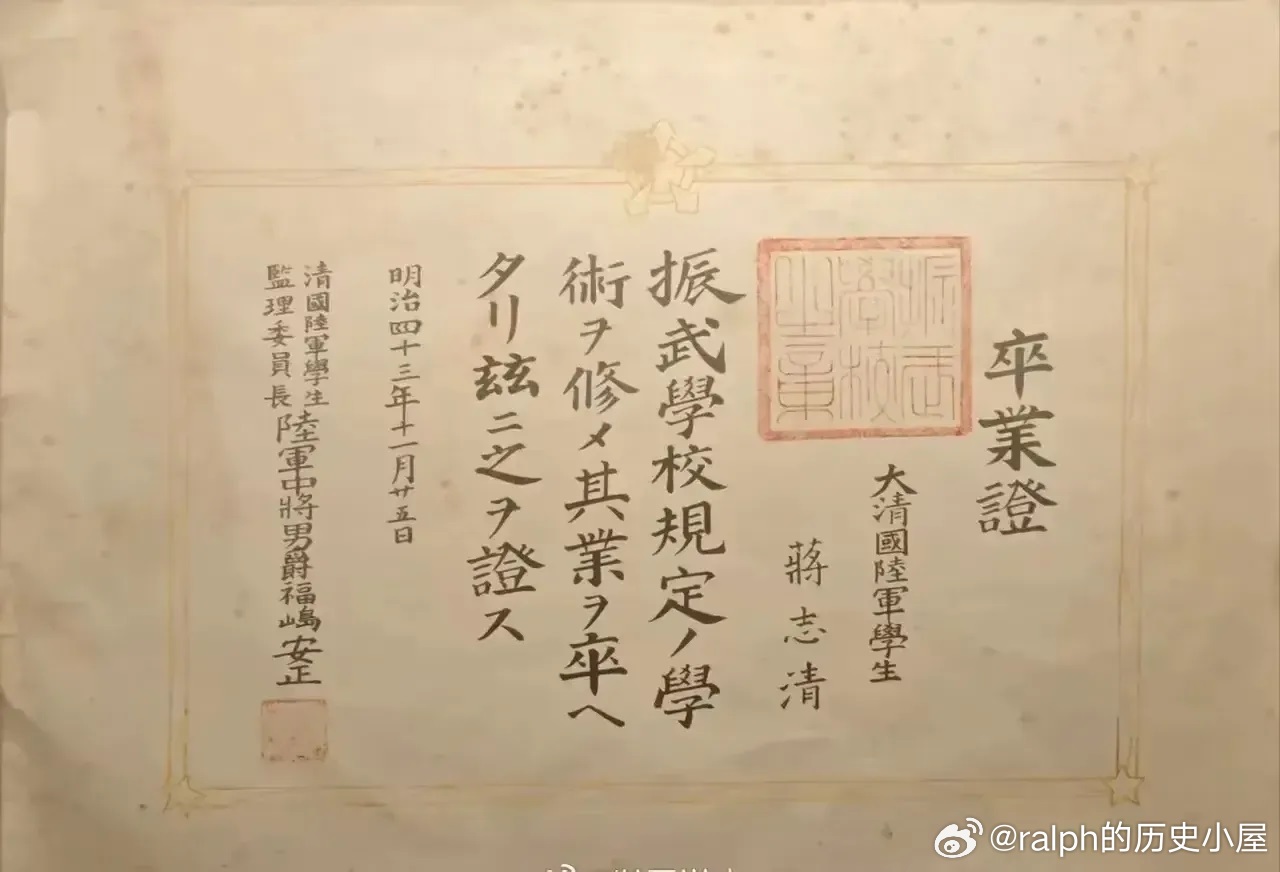 卒業證
振武學校之章
大清國陸軍學生
蔣志清
振武學校規定ノ學
術ヲ修メ其業ヲ卒ヘ
タリ玆ニ之ヲ證ス
明治四十三年十一月廿五日
清國陸軍學生
監理委員長
陸軍中將男爵福嶋安正
@ralph的历史小屋